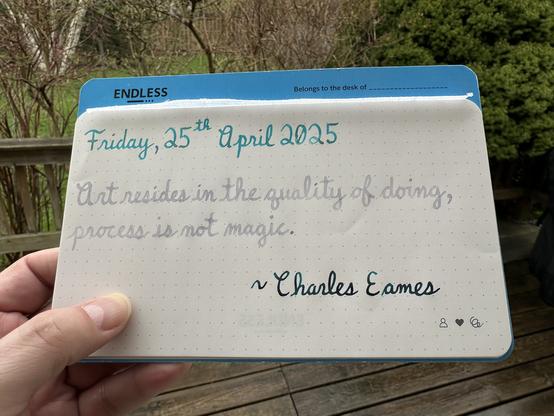 ENDLESS
Belongs to the desk of
Friday, 25th April 2025
Art resides in the quality of doing,
process is not magic.
~ Charles Eames